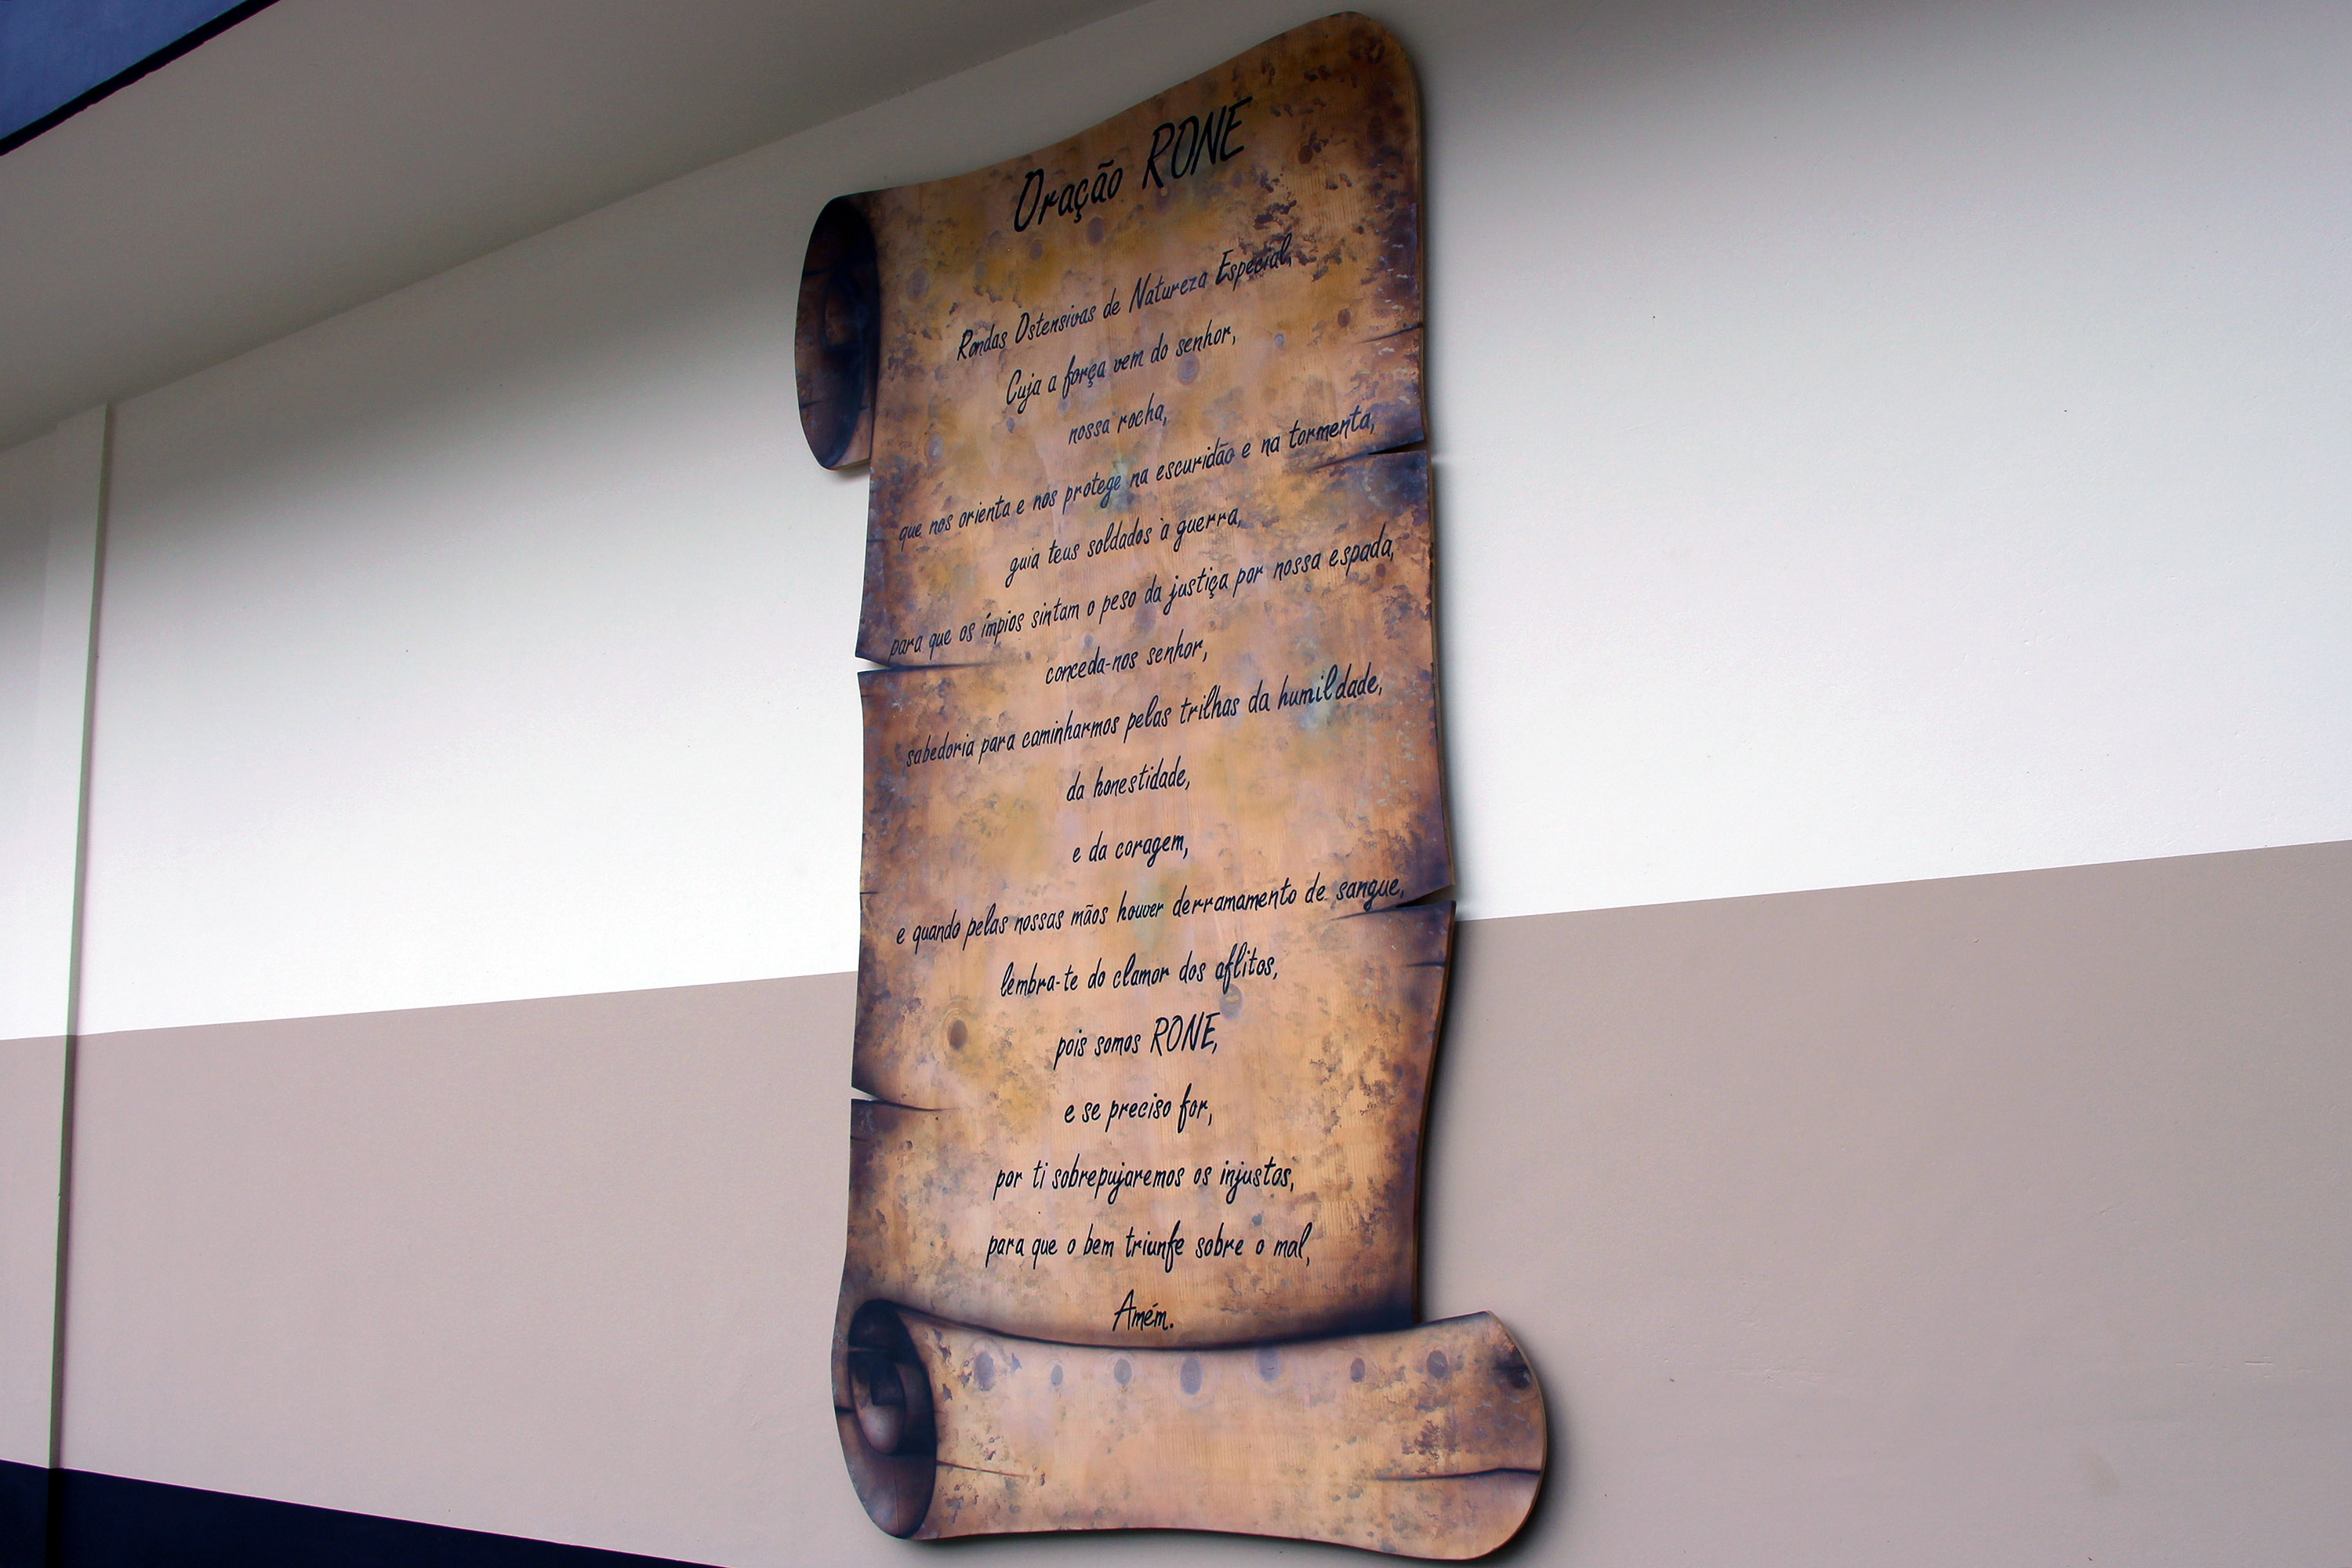 Oração RONE
Rondas Ostensivas de Natureza Especial,
Cuja a força vem do senhor,
nossa rocha,
que nos orienta e nos protege na escuridão e na tormenta,
guia teus soldados à guerra,
para que os ímpios sintam o peso da justiça por nossa espada,
conceda-nos senhor,
sabedoria para caminharmos pelas trilhas da humildade,
da honestidade,
e da coragem,
e quando pelas nossas mãos houver derramamento de sangue,
lembra-te do clamor dos aflitos,
pois somos RONE,
e se preciso for,
por ti sobrepujaremos os injustos,
para que o bem triunfe sobre o mal,
Amém.